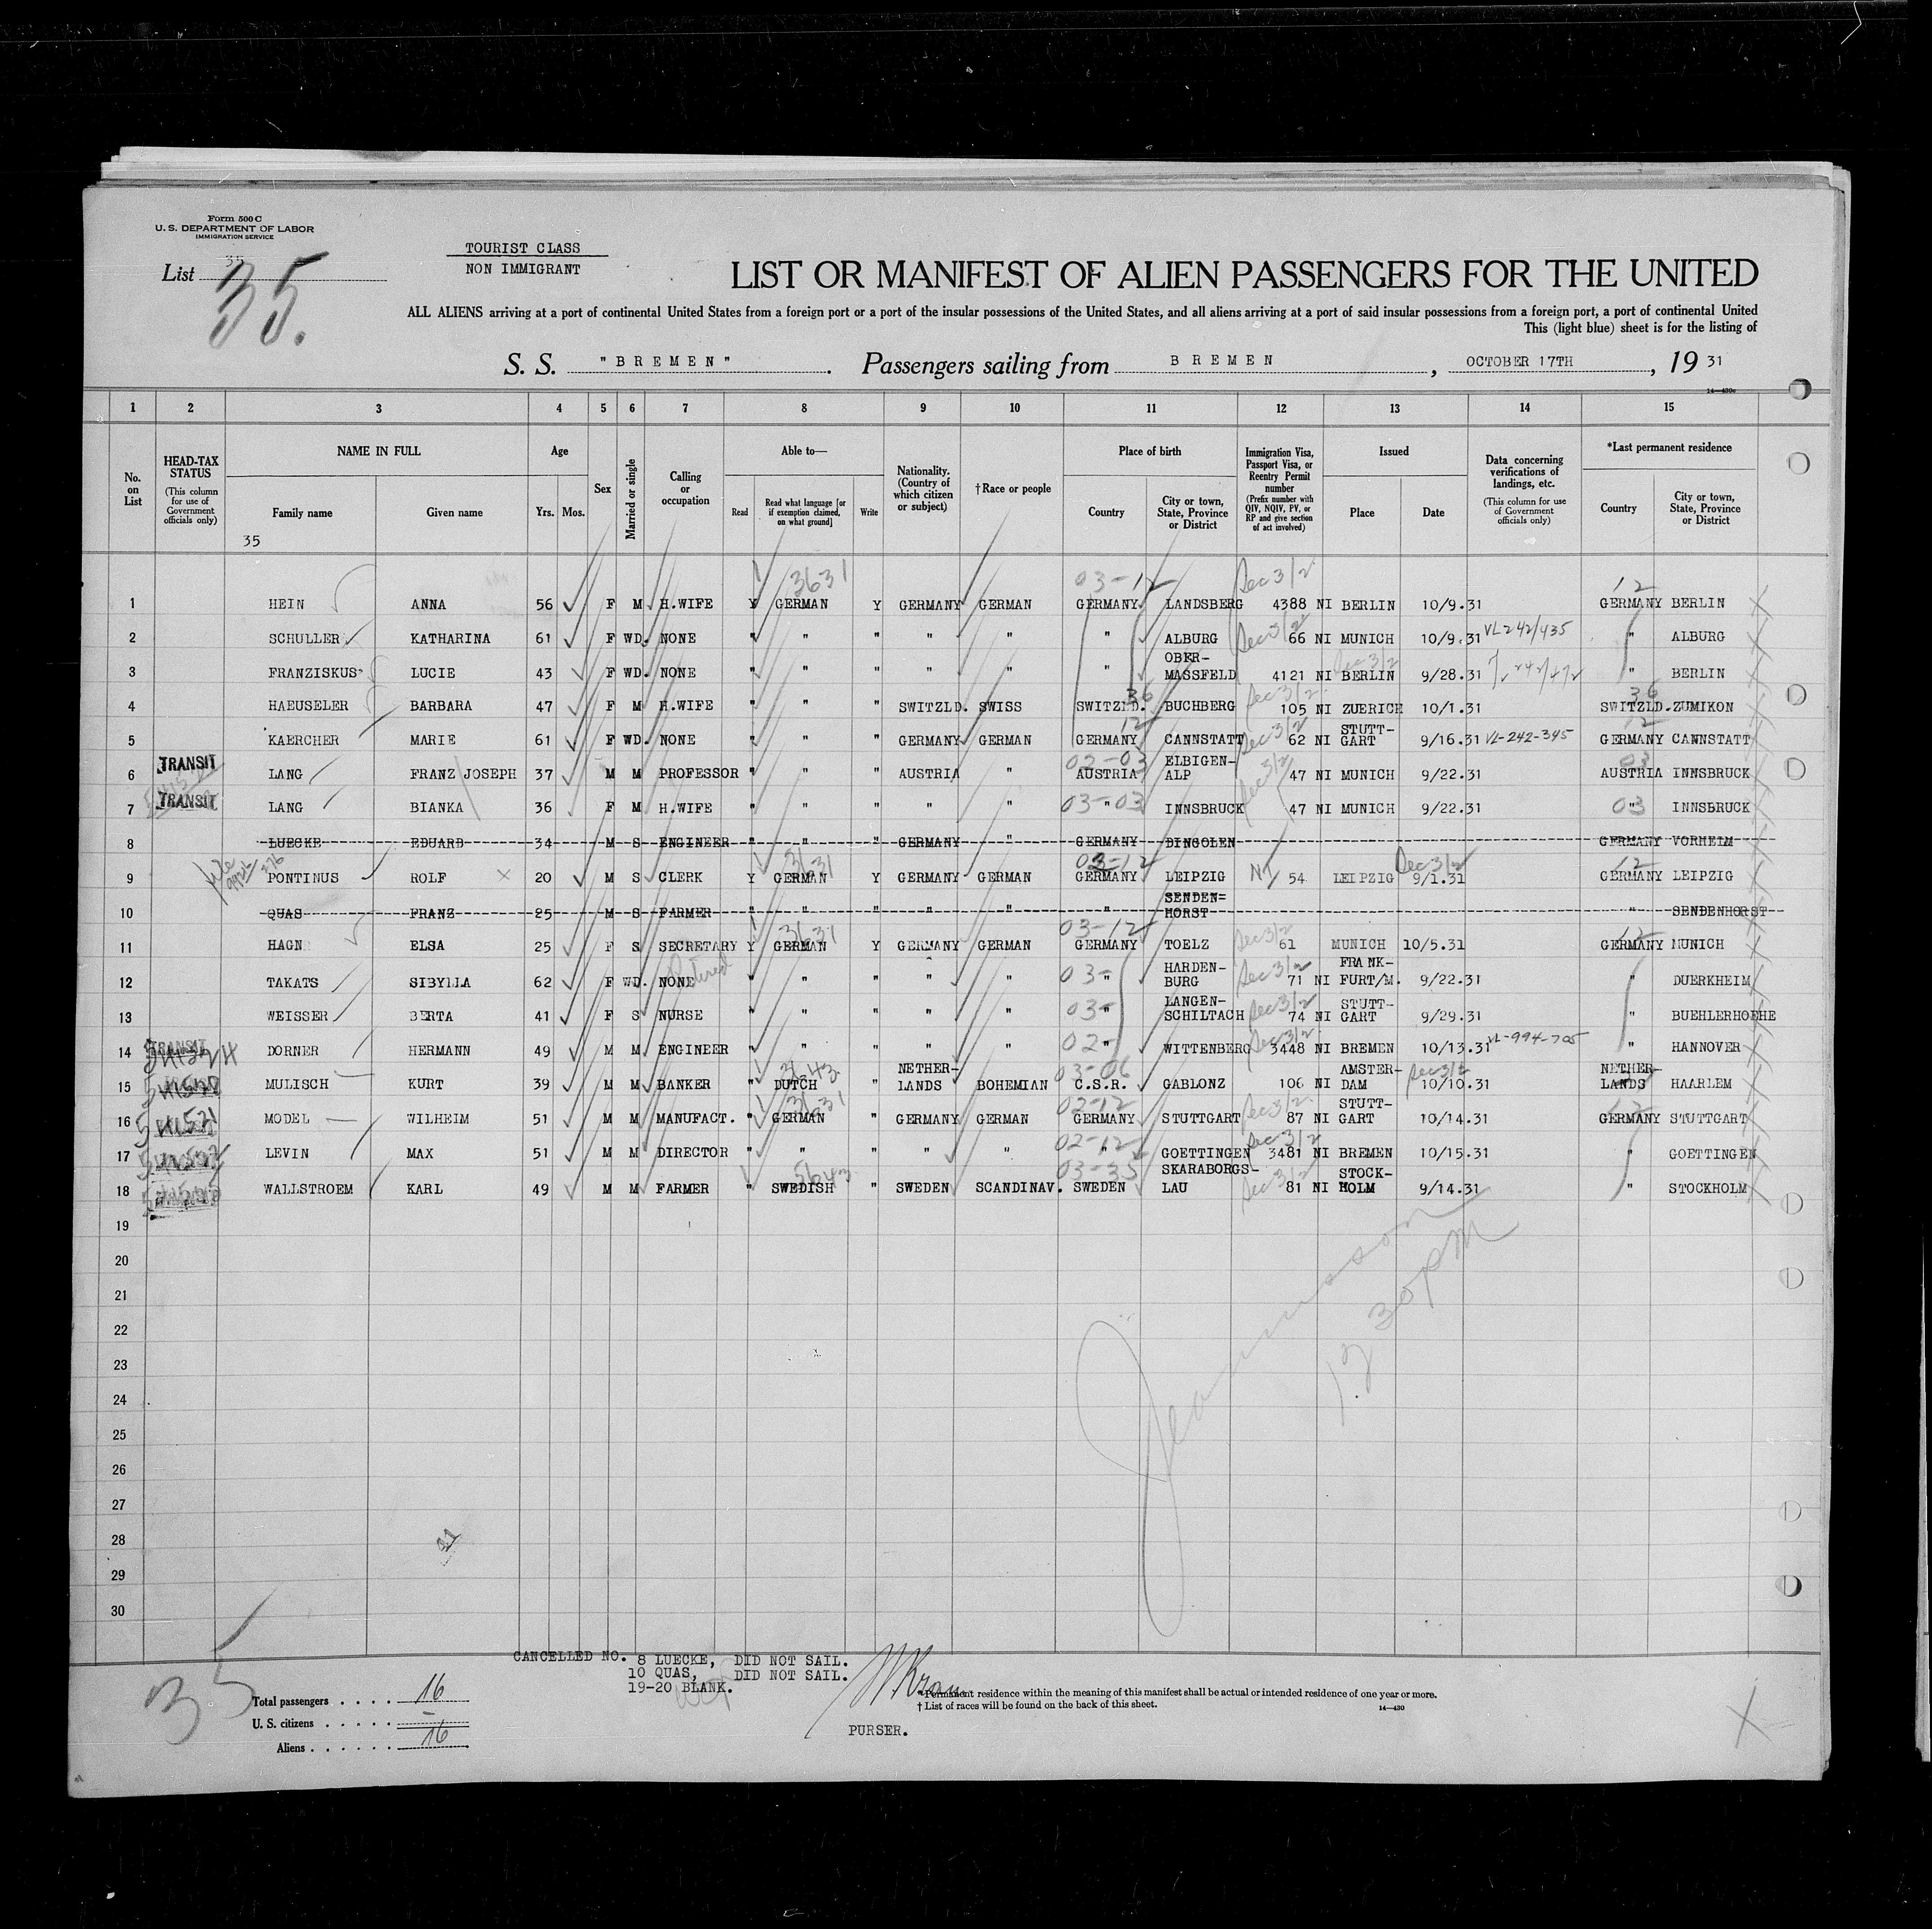 Form 500 C
U. S. DEPARTMENT OF LABOR
IMMIGRATION SERVICE
List 35
35.
TOURIST CLASS
NON IMMIGRANT
LIST OR MANIFEST OF ALIEN PASSENGERS FOR THE UNITED
ALL ALIENS arriving at a port of continental United States from a foreign port or a port of the insular possessions of the United States, and all aliens arriving at a port of said insular possessions from a foreign port, a port of continental United
This (light blue) sheet is for the listing of
S. S. "BREMEN". Passengers sailing from BREMEN, OCTOBER 17TH, 19 31
14—430c
1 2 3 4 5 6 7 8 9 10 11 12 13 14 15
No. on List
HEAD-TAX STATUS (This column for use of Government officials only)
NAME IN FULL
Family name
Given name
35
Age
Yrs. Mos.
Sex
Married or single
Calling or occupation
Able to—
Read
Read what language [or if exemption claimed, on what ground]
Write
Nationality. (Country of which citizen or subject)
†Race or people
Place of birth
Country
City or town, State, Province or District
Immigration Visa, Passport Visa, or Reentry Permit number (Prefix number with QIV, NQIV, PV, or RP and give section of act involved)
Issued
Place
Date
Data concerning verifications of landings, etc. (This column for use of Government officials only)
*Last permanent residence
Country
City or town, State, Province or District
3631 03-12 Sec 3/2 12
1 HEIN ANNA 56 F M H.WIFE Y GERMAN Y GERMANY GERMAN GERMANY LANDSBERG 4388 NI BERLIN 10/9.31 GERMANY BERLIN
2 SCHULLER KATHARINA 61 F WD. NONE " " " " " " ALBURG Sec 3/2 66 NI MUNICH 10/9.31 VL242/435 " ALBURG
3 FRANZISKUS LUCIE 43 F WD. NONE " " " " " " OBER-MASSFELD 4121 NI BERLIN Sec 3/2 9/28.31 " BERLIN
4 HAEUSELER BARBARA 47 F M H.WIFE " " " SWITZLD. SWISS SWITZLD. 36 BUCHBERG Sec 3/2 105 NI ZUERICH 10/1.31 36 SWITZLD. ZUMIKON
5 KAERCHER MARIE 61 F WD. NONE " " " GERMANY GERMAN GERMANY 12 CANNSTATT Sec 3/2 62 NI STUTT-GART 9/16.31 VL-242-345 12 GERMANY CANNSTATT
6 TRANSIT LANG FRANZ JOSEPH 37 M M PROFESSOR " " " AUSTRIA " 02-03 AUSTRIA ELBIGEN-ALP Sec 3/2 47 NI MUNICH 9/22.31 03 AUSTRIA INNSBRUCK
7 TRANSIT LANG BIANKA 36 F M H.WIFE " " " " " 03-03 " INNSBRUCK 47 NI MUNICH 9/22.31 03 " INNSBRUCK
8 LUECKE EDUARD 34 M S ENGINEER " " " GERMANY " GERMANY DINGOLEN GERMANY VORHEIM
9 PONTINUS ROLF 20 M S CLERK Y 3631 GERMAN Y GERMANY GERMAN 03-12 GERMANY LEIPZIG NI 54 LEIPZIG Sec 3/2 9/1.31 12 GERMANY LEIPZIG
10 QUAS FRANZ 25 M S FARMER " " " " " " SENDEN=HORST " SENDENHORST
11 HAGN ELSA 25 F S SECRETARY Y 3631 GERMAN Y GERMANY GERMAN 03-12 GERMANY TOELZ Sec 3/2 61 MUNICH 10/5.31 12 GERMANY MUNICH
12 TAKATS SIBYLLA 62 F WD. NONE Retired " " " " " 03- " HARDEN-BURG Sec 3/2 71 NI FRANK-FURT/M. 9/22.31 " DUERKHEIM
13 WEISSER BERTA 41 F S NURSE " " " " " 03- " LANGEN-SCHILTACH Sec 3/2 74 NI STUTT-GART 9/29.31 " BUEHLERHOEHE
14 TRANSIT DORNER HERMANN 49 M M ENGINEER " " " " " 02- " WITTENBERG Sec 3/2 3448 NI BREMEN 10/13.31 VL-994-705 " HANNOVER
15 MULISCH KURT 39 M M BANKER " 3643 DUTCH " NETHER-LANDS BOHEMIAN 03-06 C.S.R. GABLONZ 106 NI AMSTER-DAM Sec 3/2 10/10.31 NETHER-LANDS HAARLEM
16 MODEL WILHEIM 51 M M MANUFACT. " 3631 GERMAN " GERMANY GERMAN 02-12 GERMANY STUTTGART Sec 3/2 87 NI STUTT-GART 10/14.31 12 GERMANY STUTTGART
17 LEVIN MAX 51 M M DIRECTOR " " " " " 02-12 " GOETTINGEN Sec 3/2 3481 NI BREMEN 10/15.31 " GOETTINGEN
18 WALLSTROEM KARL 49 M M FARMER " 3643 SWEDISH " SWEDEN SCANDINAV. 03-35 SWEDEN SKARABORGS-LAU Sec 3/2 81 NI STOCK-HOLM 9/14.31 " STOCKHOLM
19
20
21
22
23
24
25
26
27
28
29
30
30pm
CANCELLED NO. 8 LUECKE, DID NOT SAIL.
10 QUAS, DID NOT SAIL.
19-20 BLANK.
PURSER.
35
Total passengers . . . . . 16
U. S. citizens . . . . . . –
Aliens . . . . . . 16
*Permanent residence within the meaning of this manifest shall be actual or intended residence of one year or more.
† List of races will be found on the back of this sheet.
14—430